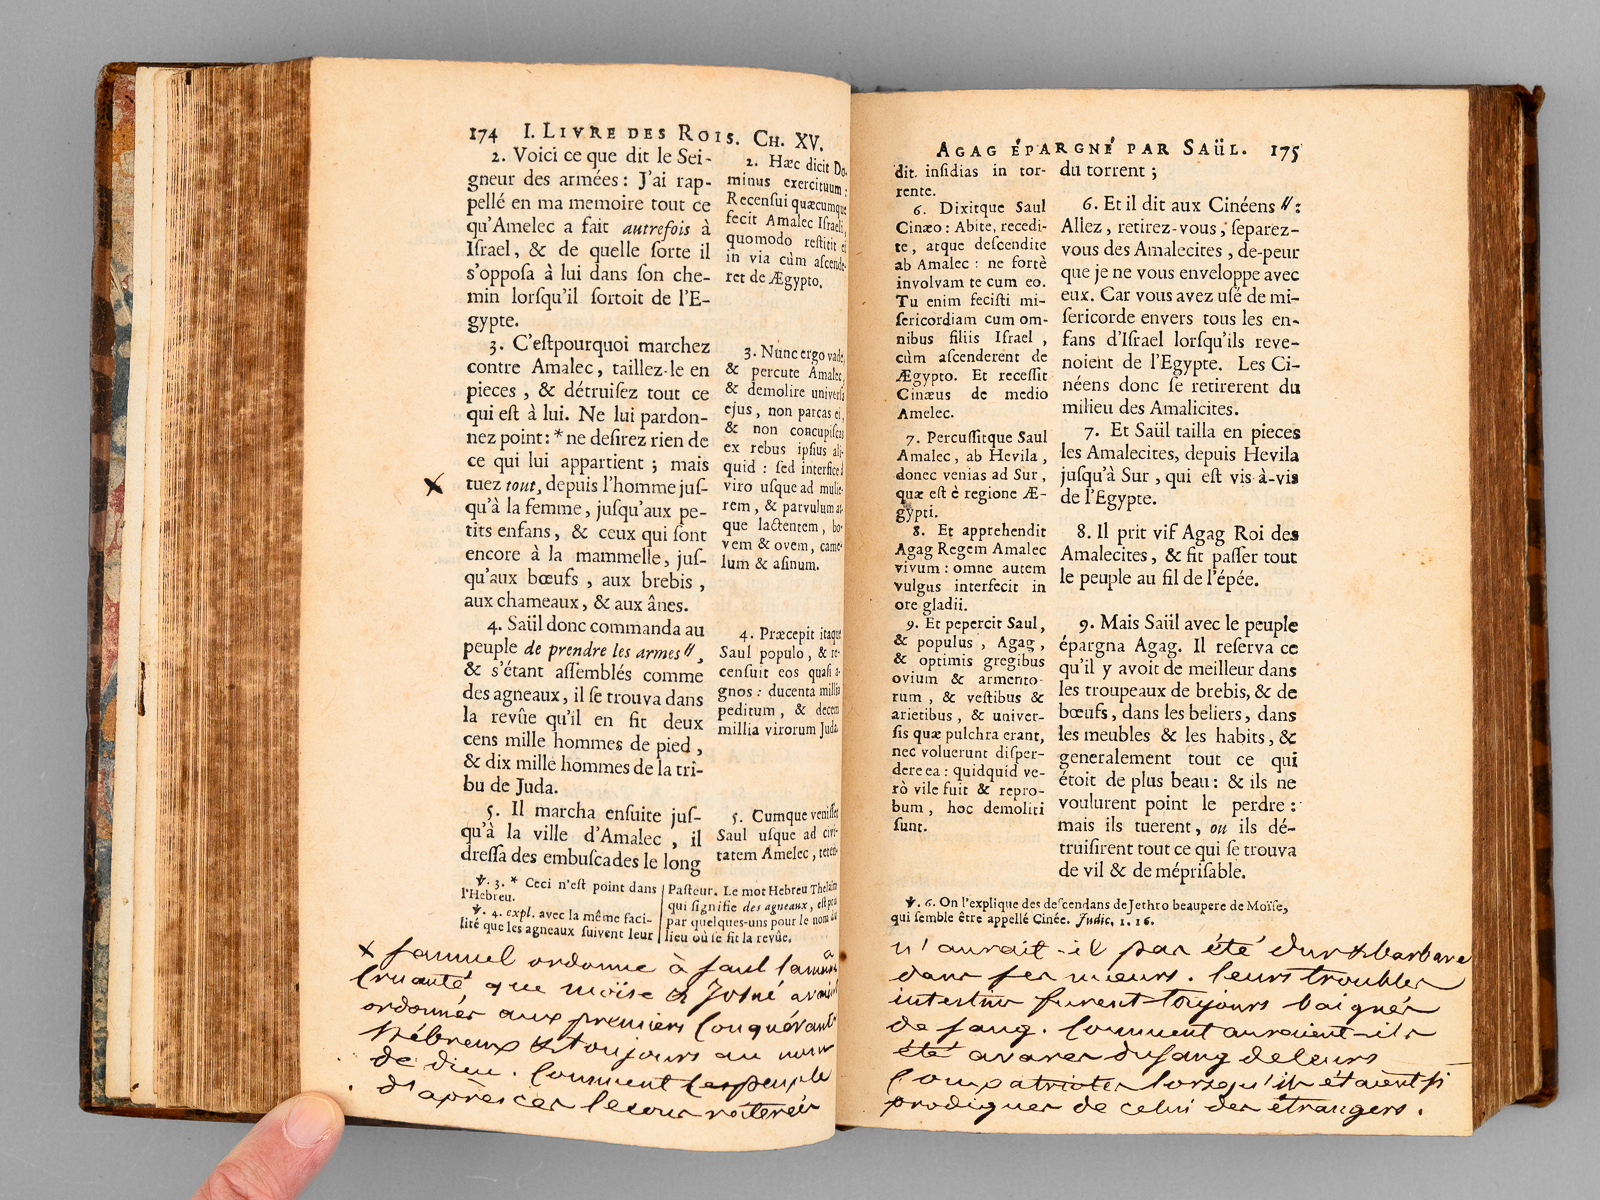 174 I. LIVRE DES ROIS. CH. XV.
2. Voici ce que dit le Sei-
gneur des armées : J'ai rap-
pellé en ma memoire tout ce
qu'Amelec a fait autrefois à
Iſrael, & de quelle ſorte il
s'oppoſa à lui dans ſon che-
min lorſqu'il ſortoit de l'E-
gypte.
3. C'eſtpourquoi marchez
contre Amalec, taillez-le en
pieces, & détruiſez tout ce
qui eſt à lui. Ne lui pardon-
nez point : * ne deſirez rien de
ce qui lui appartient ; mais
tuez tout, depuis l'homme juſ-
qu'à la femme, juſqu'aux pe-
tits enfans, & ceux qui ſont
encore à la mammelle, juſ-
qu'aux bœufs, aux brebis,
aux chameaux, & aux ânes.
4. Saül donc commanda au
peuple de prendre les armes //,
& s'étant aſſemblés comme
des agneaux, il ſe trouva dans
la revûe qu'il en fit deux
cens mille hommes de pied,
& dix mille hommes de la tri-
bu de Juda.
5. Il marcha enſuite juſ-
qu'à la ville d'Amalec, il
dreſſa des embuſcades le long
2. Hæc dicit Do-
minus exercituum :
Recenſui quæcumque
fecit Amalec Iſraeli,
quomodo reſtitit ei
in via cùm aſcende-
ret de Ægypto.
3. Nunc ergo vade,
& percute Amalec,
& demolire univerſa
ejus, non parcas ei,
& non concupiſcas
ex rebus ipſius ali-
quid : ſed interfice à
viro uſque ad mulie-
rem, & parvulum at-
que lactentem, bo-
vem & ovem, came-
lum & aſinum.
4. Præcepit itaque
Saul populo, & re-
cenſuit eos quaſi a-
gnos : ducenta millia
peditum, & decem
millia virorum Juda.
5. Cumque veniſſet
Saul uſque ad civi-
tatem Amelec, teten-
℣. 3. * Ceci n'eſt point dans
l'Hebreu.
℣. 4. expl. avec la même faci-
lité que les agneaux ſuivent leur
Paſteur. Le mot Hebreu Thelaim
qui ſignifie des agneaux, eſt pris
par quelques-uns pour le nom du
lieu où ſe fit la revûe.
x
x Samuel ordonne à Saul la même
Cruauté que moïse & Josué avaient
ordonnés aux premiers Conquérants
hébreux & toujours au nom
de dieu. Comment le peuple
d'après ces lecons réiterées
AGAG ÉPARGNÉ PAR SAÜL. 175
dit inſidias in tor-
rente.
6. Dixitque Saul
Cinæo : Abite, recedi-
te, atque deſcendite
ab Amalec : ne fortè
involvam te cum eo.
Tu enim feciſti mi-
ſericordiam cum om-
nibus filiis Iſrael,
cùm aſcenderent de
Ægypto. Et receſſit
Cinæus de medio
Amelec.
7. Percuſſitque Saul
Amalec, ab Hevila,
donec venias ad Sur,
quæ eſt è regione Æ-
gypti.
8. Et apprehendit
Agag Regem Amalec
vivum : omne autem
vulgus interfecit in
ore gladii.
9. Et pepercit Saul,
& populus, Agag,
& optimis gregibus
ovium & armento-
rum, & veſtibus &
arietibus, & univer-
ſis quæ pulchra erant,
nec voluerunt diſper-
dere ea : quidquid ve-
rò vile fuit & repro-
bum, hoc demoliti
ſunt.
du torrent ;
6. Et il dit aux Cinéens // :
Allez, retirez-vous, ſeparez-
vous des Amalecites, de-peur
que je ne vous enveloppe avec
eux. Car vous avez uſé de mi-
ſericorde envers tous les en-
fans d'Iſrael lorſqu'ils reve-
noient de l'Egypte. Les Ci-
néens donc ſe retirerent du
milieu des Amalicites.
7. Et Saül tailla en pieces
les Amalecites, depuis Hevila
juſqu'à Sur, qui eſt vis-à-vis
de l'Egypte.
8. Il prit vif Agag Roi des
Amalecites, & fit paſſer tout
le peuple au fil de l'épée.
9. Mais Saül avec le peuple
épargna Agag. Il reſerva ce
qu'il y avoit de meilleur dans
les troupeaux de brebis, & de
bœufs, dans les beliers, dans
les meubles & les habits, &
generalement tout ce qui
étoit de plus beau : & ils ne
voulurent point le perdre :
mais ils tuerent, ou ils dé-
truiſirent tout ce qui ſe trouva
de vil & de mépriſable.
℣. 6. On l'explique des deſcendans de Jethro beaupere de Moïſe,
qui ſemble être appellé Cinée. Judic. 1. 16.
n'aurait-il pas été dur & barbare
dans ses mœurs. leurs troubles
intestins furent toujours baignés
de sang. Comment auraient-ils
été avares du sang de leurs
Compatriotes lorsqu'ils étaient si
prodigues de celui des étrangers.